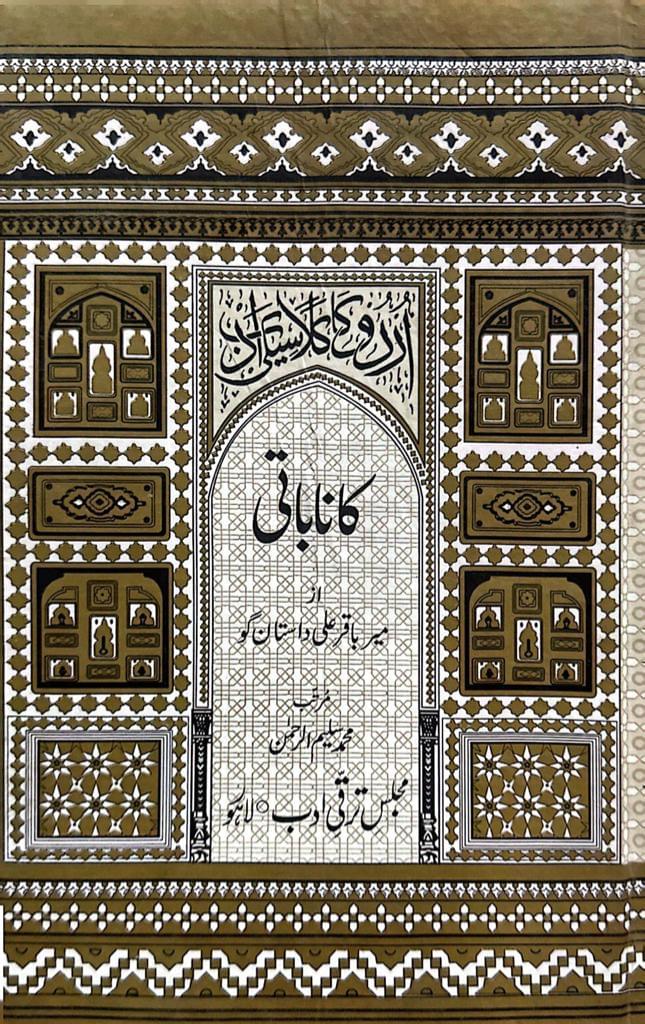 اردو کا کلاسیکی ادب
کانا باتی
از
میر باقر علی داستان گو
مرتب
محمد سلیم الرحمٰن
مجلس ترقی ادب ○ لاہور